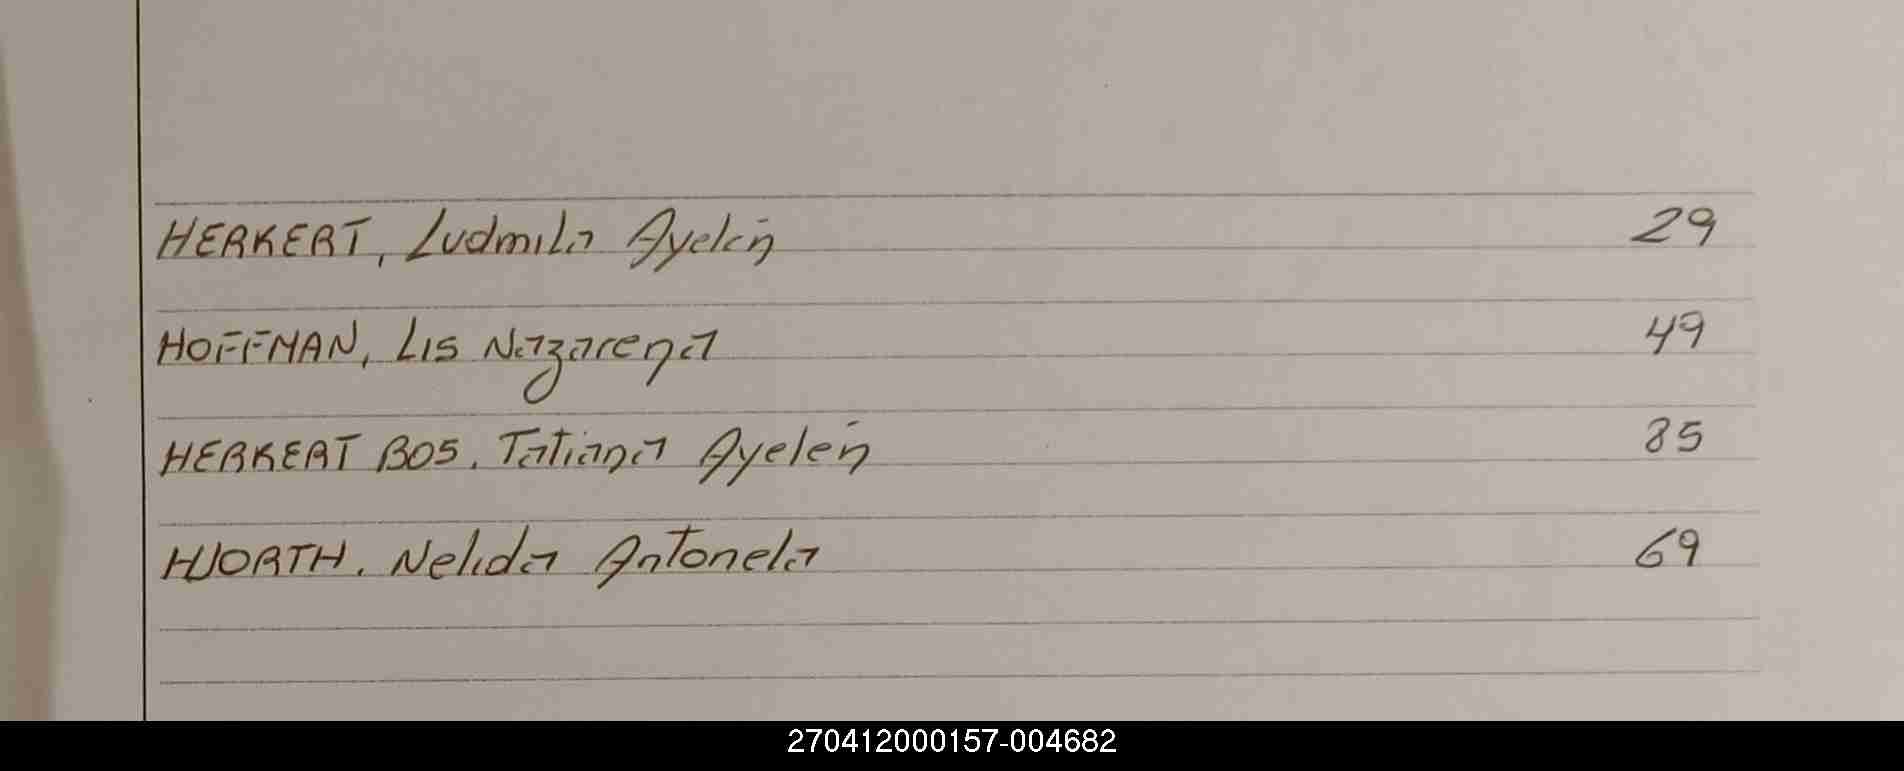 HERKERT, Ludmila Ayelén 29
HOFFMAN, Lis Nazarena 49
HERKERT BOS, Tatiana Ayelén 85
HJORTH, Nelida Antonela 69
270412000157-004682